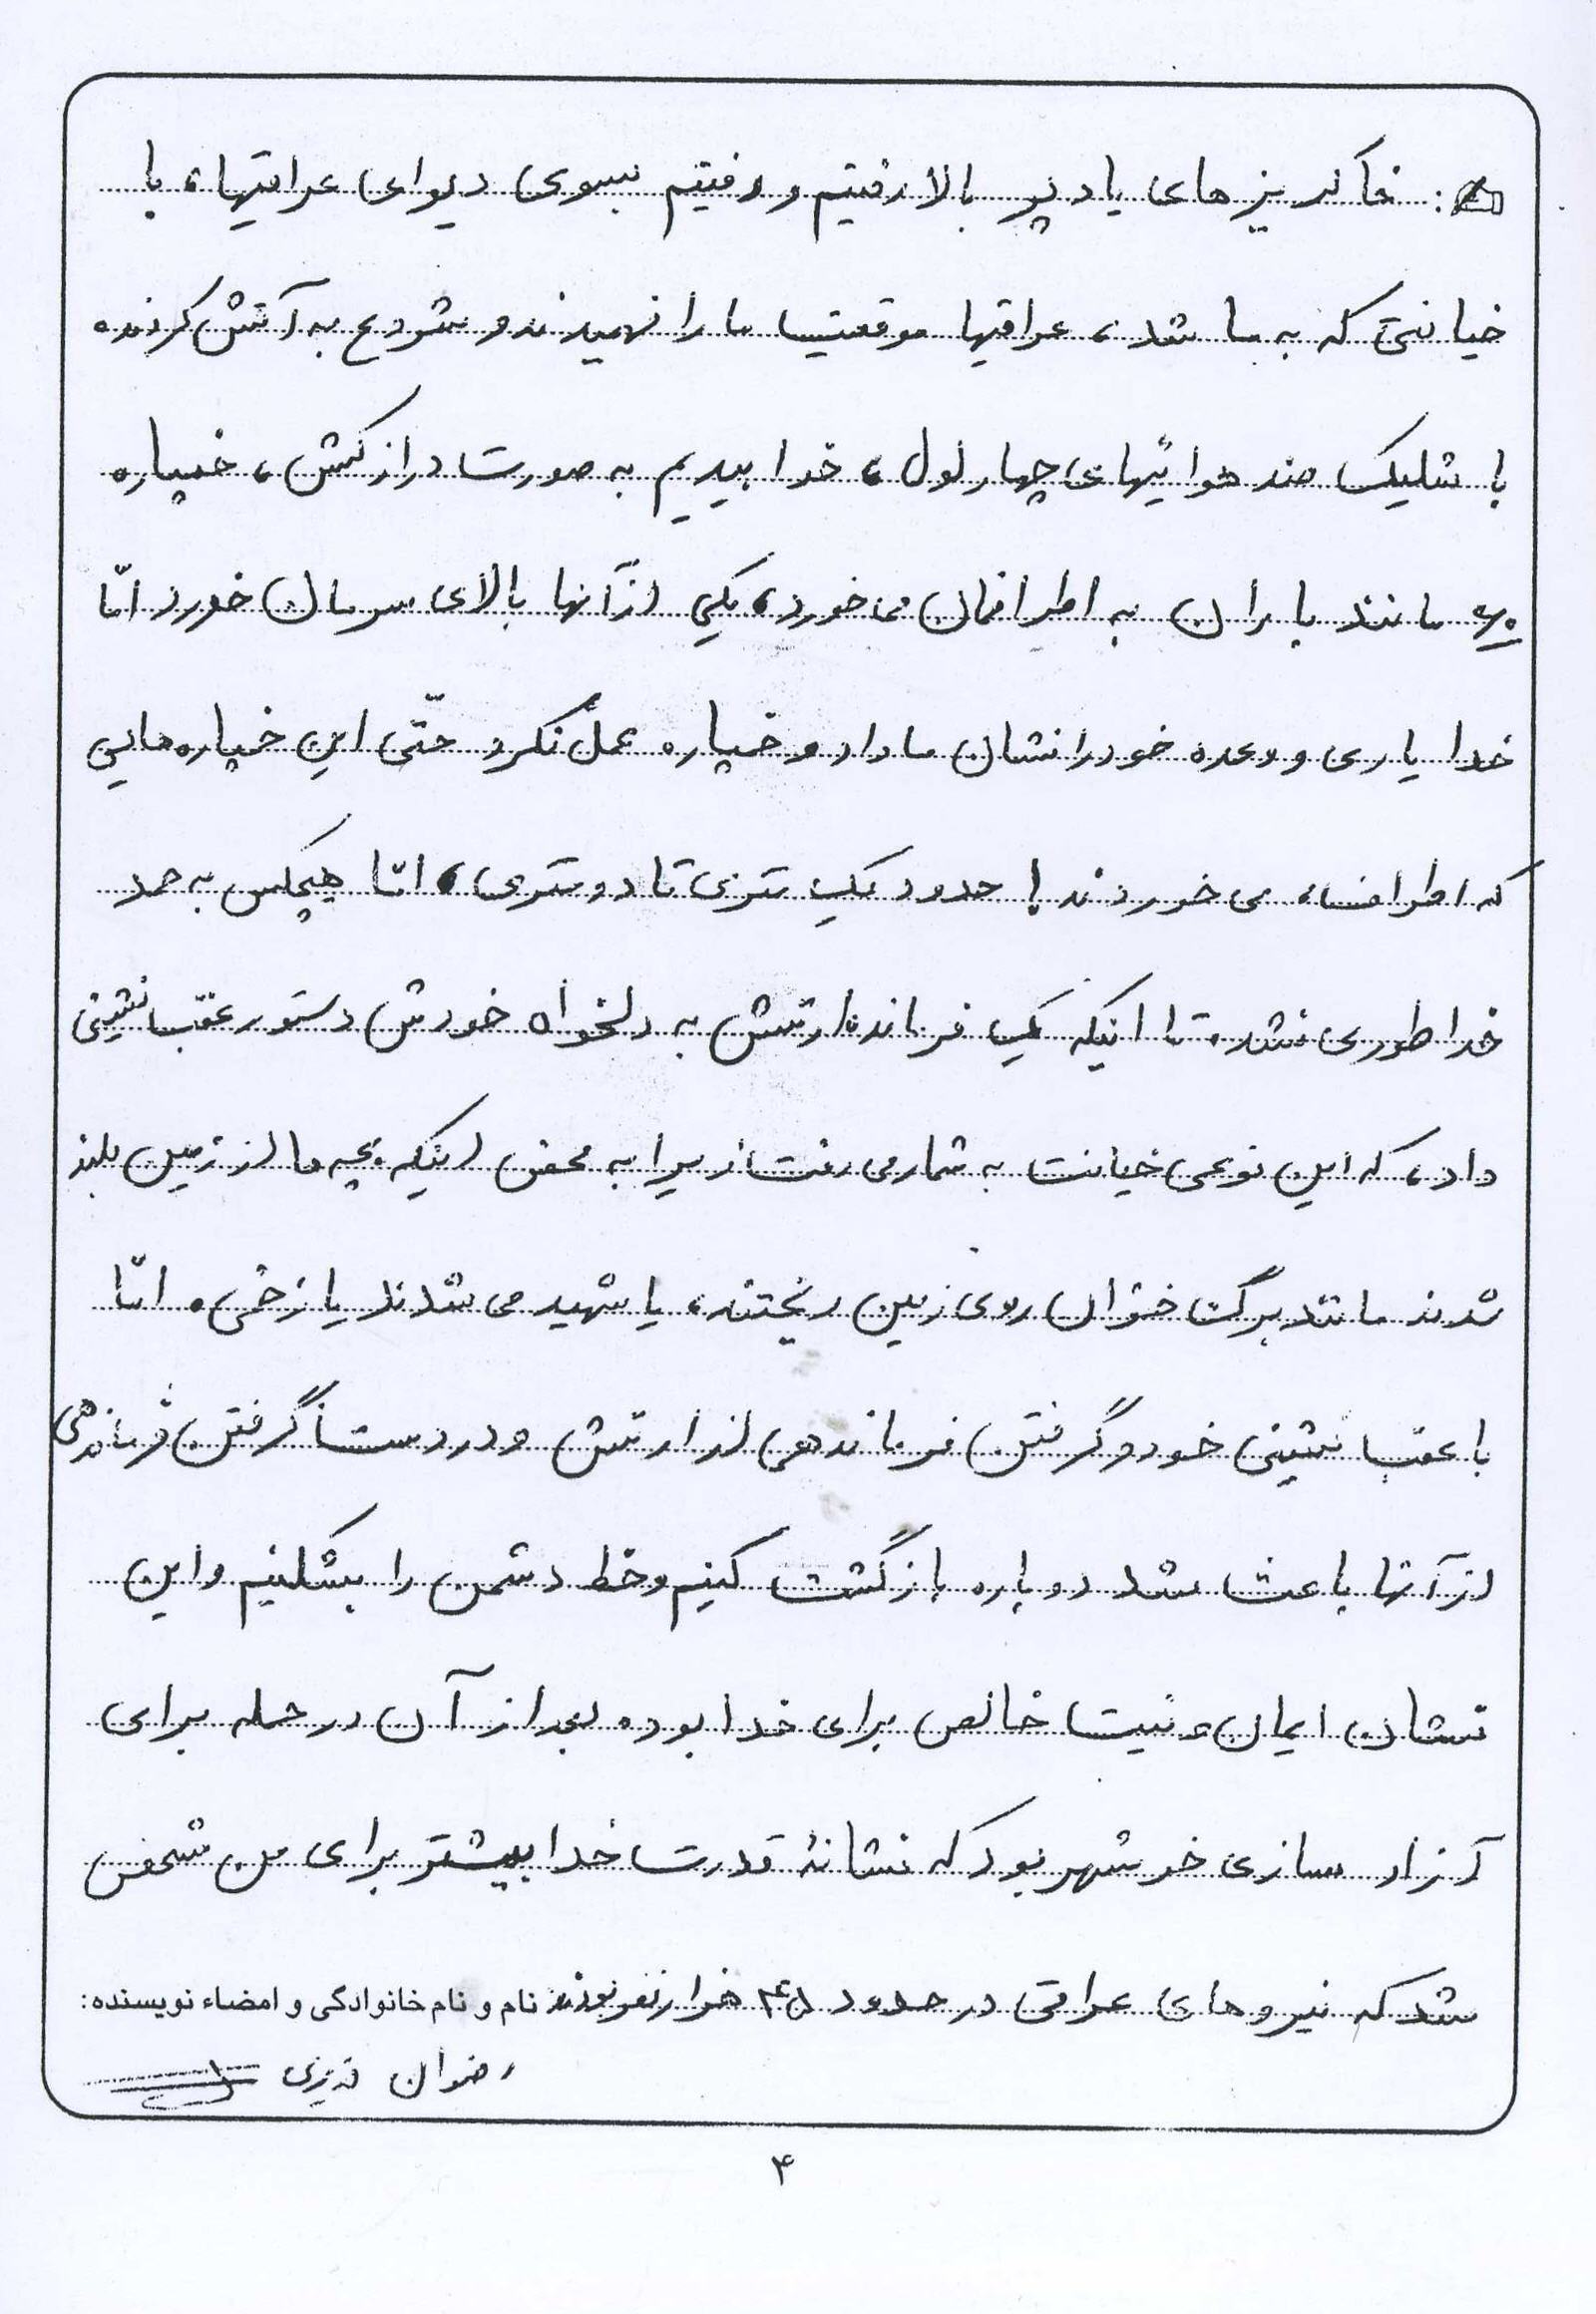 : خاکریزهای یاد پر بالا رفتیم و رفتیم بسوی دیوای عراقیها، با
خیانتی که به ما شد، عراقیها موقعیت ما را فهمیدند و شروع به آتش کردند
با شلیک ضد هوائیهای چهار لول، خوابیدیم به صورت دراز کش، خمپاره
۶۰ مانند باران به اطرافمان می خورد، یکی از آنها بالای سرمان خورد امّا
خدا یاری و وعده خود را نشان ما داد و خمپاره عمل نکرد حتّی این خمپاره هایی
که اطراف ما می خوردند! حدود یک متری تا دو متری، امّا هیچکس به حمد
خدا طوری نشد. تا اینکه یک فرمانده ارتش به دلخواه خودش دستور عقب نشینی
داد، که این نوعی خیانت به شمار می رفت زیرا به محض اینکه بچه ها از زمین بلند
شدند مانند برگ خزان روی زمین ریختند، یا شهید می شدند یا زخمی. امّا
با عقب نشینی خود و گرفتن فرماندهی از ارتش و در دست گرفتن فرماندهی
از آنها باعث شد دوباره بازگشت کنیم و خط دشمن را بشکنیم و این
نشان ایمان و نیت خالص برای خدا بوده بعد از آن در حمله برای
آزاد سازی خرمشهر بود که نشانهٔ قدرت خدا بیشتر برای من شخص
شد که نیروهای عراقی در حدود هزار نفر بودند نام و نام خانوادگی و امضاء نویسنده:
رضوان
۴